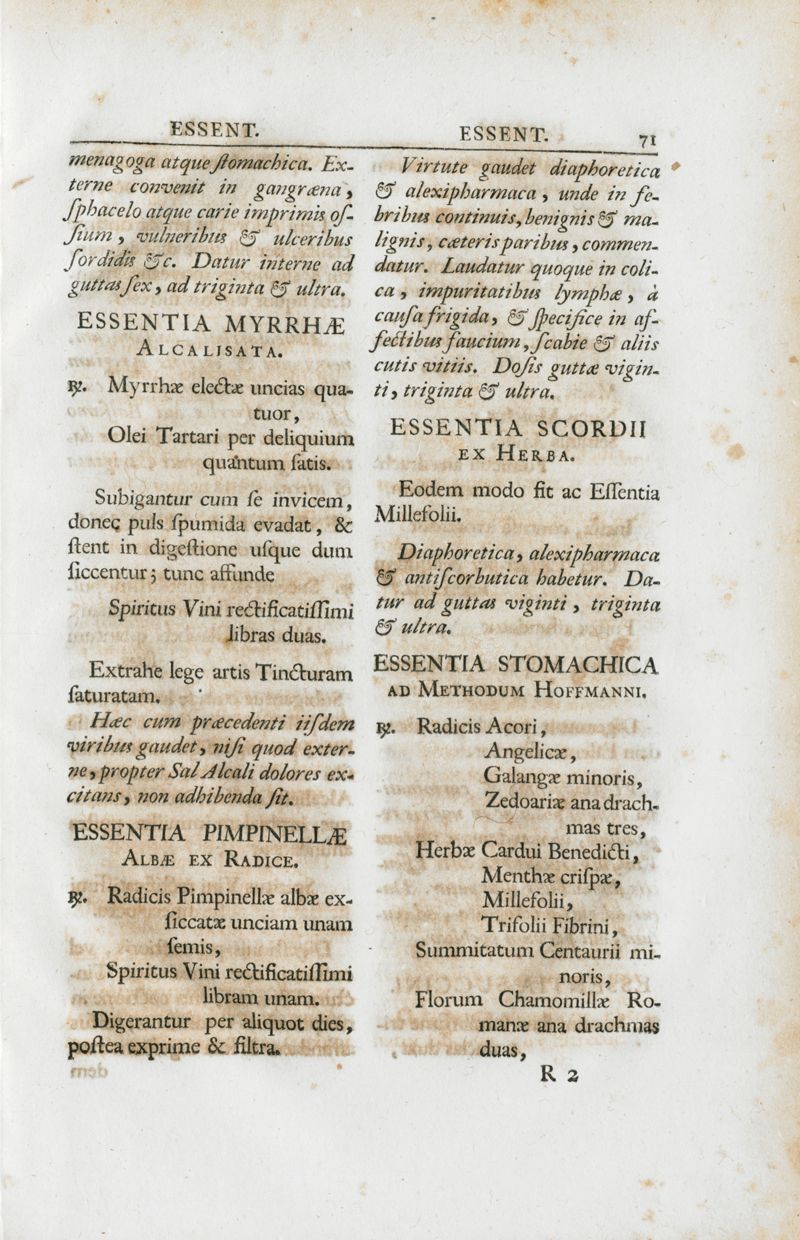 ESSENT.
menagoga atque ſtomachica. Ex-
terne convenit in gangræna,
ſphacelo atque carie imprimis oſ-
ſium, vulneribus & ulceribus
ſordidis &c. Datur interne ad
guttas ſex, ad triginta & ultra.
ESSENTIA MYRRHÆ
ALCALISATA.
℞. Myrrhæ electæ uncias qua-
tuor,
Olei Tartari per deliquium
quantum ſatis.
Subigantur cum ſe invicem,
donec puls ſpumida evadat, &
ſtent in digeſtione uſque dum
ſiccentur; tunc affunde
Spiritus Vini rectificatiſſimi
libras duas.
Extrahe lege artis Tincturam
ſaturatam.
Hæc cum præcedenti iiſdem
viribus gaudet, niſi quod exter-
ne, propter Sal Alcali dolores ex-
citans, non adhibenda ſit.
ESSENTIA PIMPINELLÆ
ALBÆ EX RADICE.
℞. Radicis Pimpinellæ albæ ex-
ſiccatæ unciam unam
ſemis,
Spiritus Vini rectificatiſſimi
libram unam.
Digerantur per aliquot dies,
poſtea exprime & filtra.
ESSENT. 71
Virtute gaudet diaphoretica
& alexipharmaca, unde in fe-
bribus continuis, benignis & ma-
lignis, cæteris paribus, commen-
datur. Laudatur quoque in coli-
ca, impuritatibus lymphæ, à
cauſa frigida, & ſpecifice in af-
fectibus faucium, ſcabie & aliis
cutis vitiis. Doſis guttæ vigin-
ti, triginta & ultra.
ESSENTIA SCORDII
EX HERBA.
Eodem modo fit ac Eſſentia
Millefolii.
Diaphoretica, alexipharmaca
& antiſcorbutica habetur. Da-
tur ad guttas viginti, triginta
& ultra.
ESSENTIA STOMACHICA
AD METHODUM HOFFMANNI.
℞. Radicis Acori,
Angelicæ,
Galangæ minoris,
Zedoariæ ana drach-
mas tres,
Herbæ Cardui Benedicti,
Menthæ criſpæ,
Millefolii,
Trifolii Fibrini,
Summitatum Centaurii mi-
noris,
Florum Chamomillæ Ro-
manæ ana drachmas
duas,
R 2